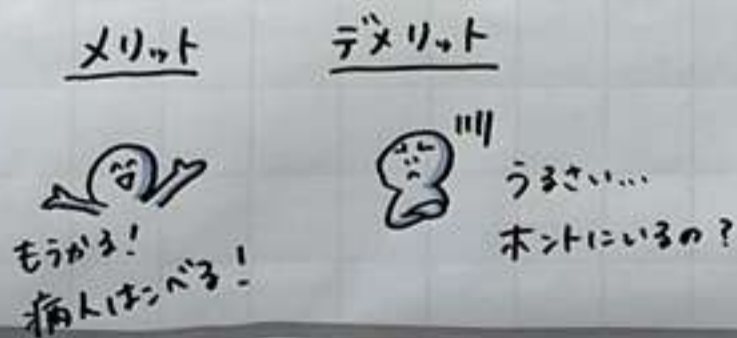 メリット
もうかる!
病人はこべる!
デメリット
うるさい…
ホントにいるの?